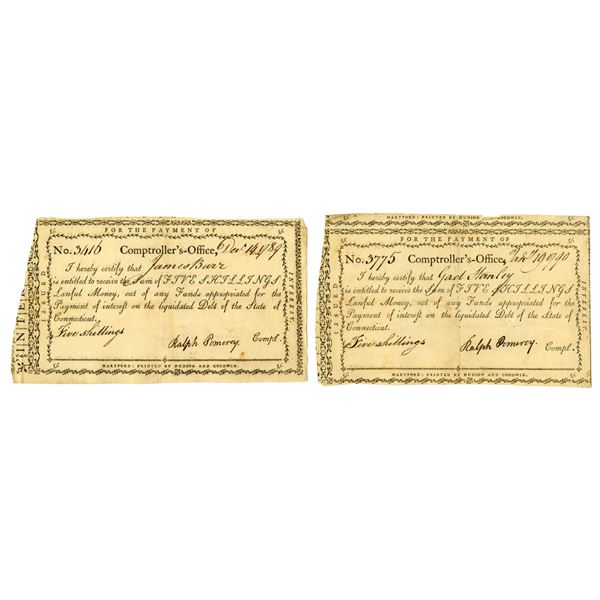 FOR THE PAYMENT OF
INTEREST
No. 3416 Comptroller's-Office, Decr 14 1789
I hereby certify that James Burr
is entitled to receive the Sum of FIVE SHILLINGS
Lawful Money, out of any Funds appropriated for the
Payment of interest on the liquidated Debt of the State of
Connecticut.
Five shillings
Ralph Pomeroy. Compt.
HARTFORD: PRINTED BY HUDSON AND GOODWIN.
HARTFORD: PRINTED BY HUDSON AND GOODWIN.
FOR THE PAYMENT OF
INTEREST
No. 3775 Comptroller's-Office, 19 1790
I hereby certify that Gad
is entitled to receive the Sum of FIVE SHILLINGS
Lawful Money, out of any Funds appropriated for the
Payment of interest on the liquidated Debt of the State of
Connecticut.
Five shillings
Ralph Pomeroy. Compt.
HARTFORD: PRINTED BY HUDSON AND GOODWIN.